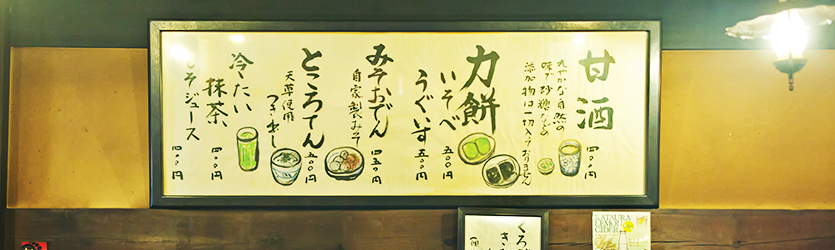 甘酒
丸やかな自然の
味で砂糖など
添加物は一切入っておりません
四〇〇円
力餅
いそべ
五〇〇円
うぐいす
五〇〇円
みそおでん
自家製みそ
四五〇円
ところてん
天草使用
つき出し
五〇〇円
冷たい
抹茶
四〇〇円
しそジュース
四〇〇円
KATAURA
LEMON
CIDER